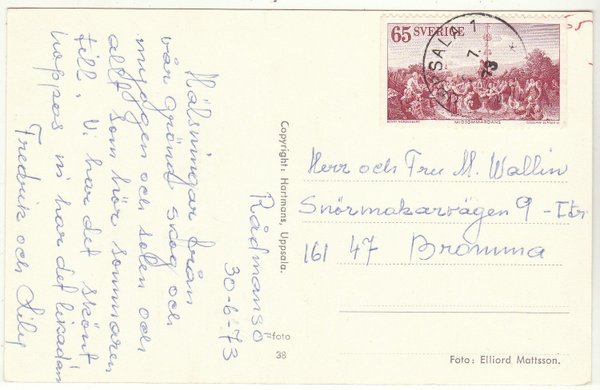 Rådmansö
30-6-73
Hälsningar från
vår grönd skog och
myggen och solen och
allt som hör sommaren
till. Vi har det skönt
hoppas ni har det likadan
Fredrik och
Copyright: Hartmans, Uppsala.
foto
38
65 SVERIGE
MIDSOMMARDANS
UPPSALA 1
7.
73
Herr och Fru M. Wallin
Snörmakarvägen 9 - 1 tr
161 47 Bromma
Foto: Elliord Mattsson.